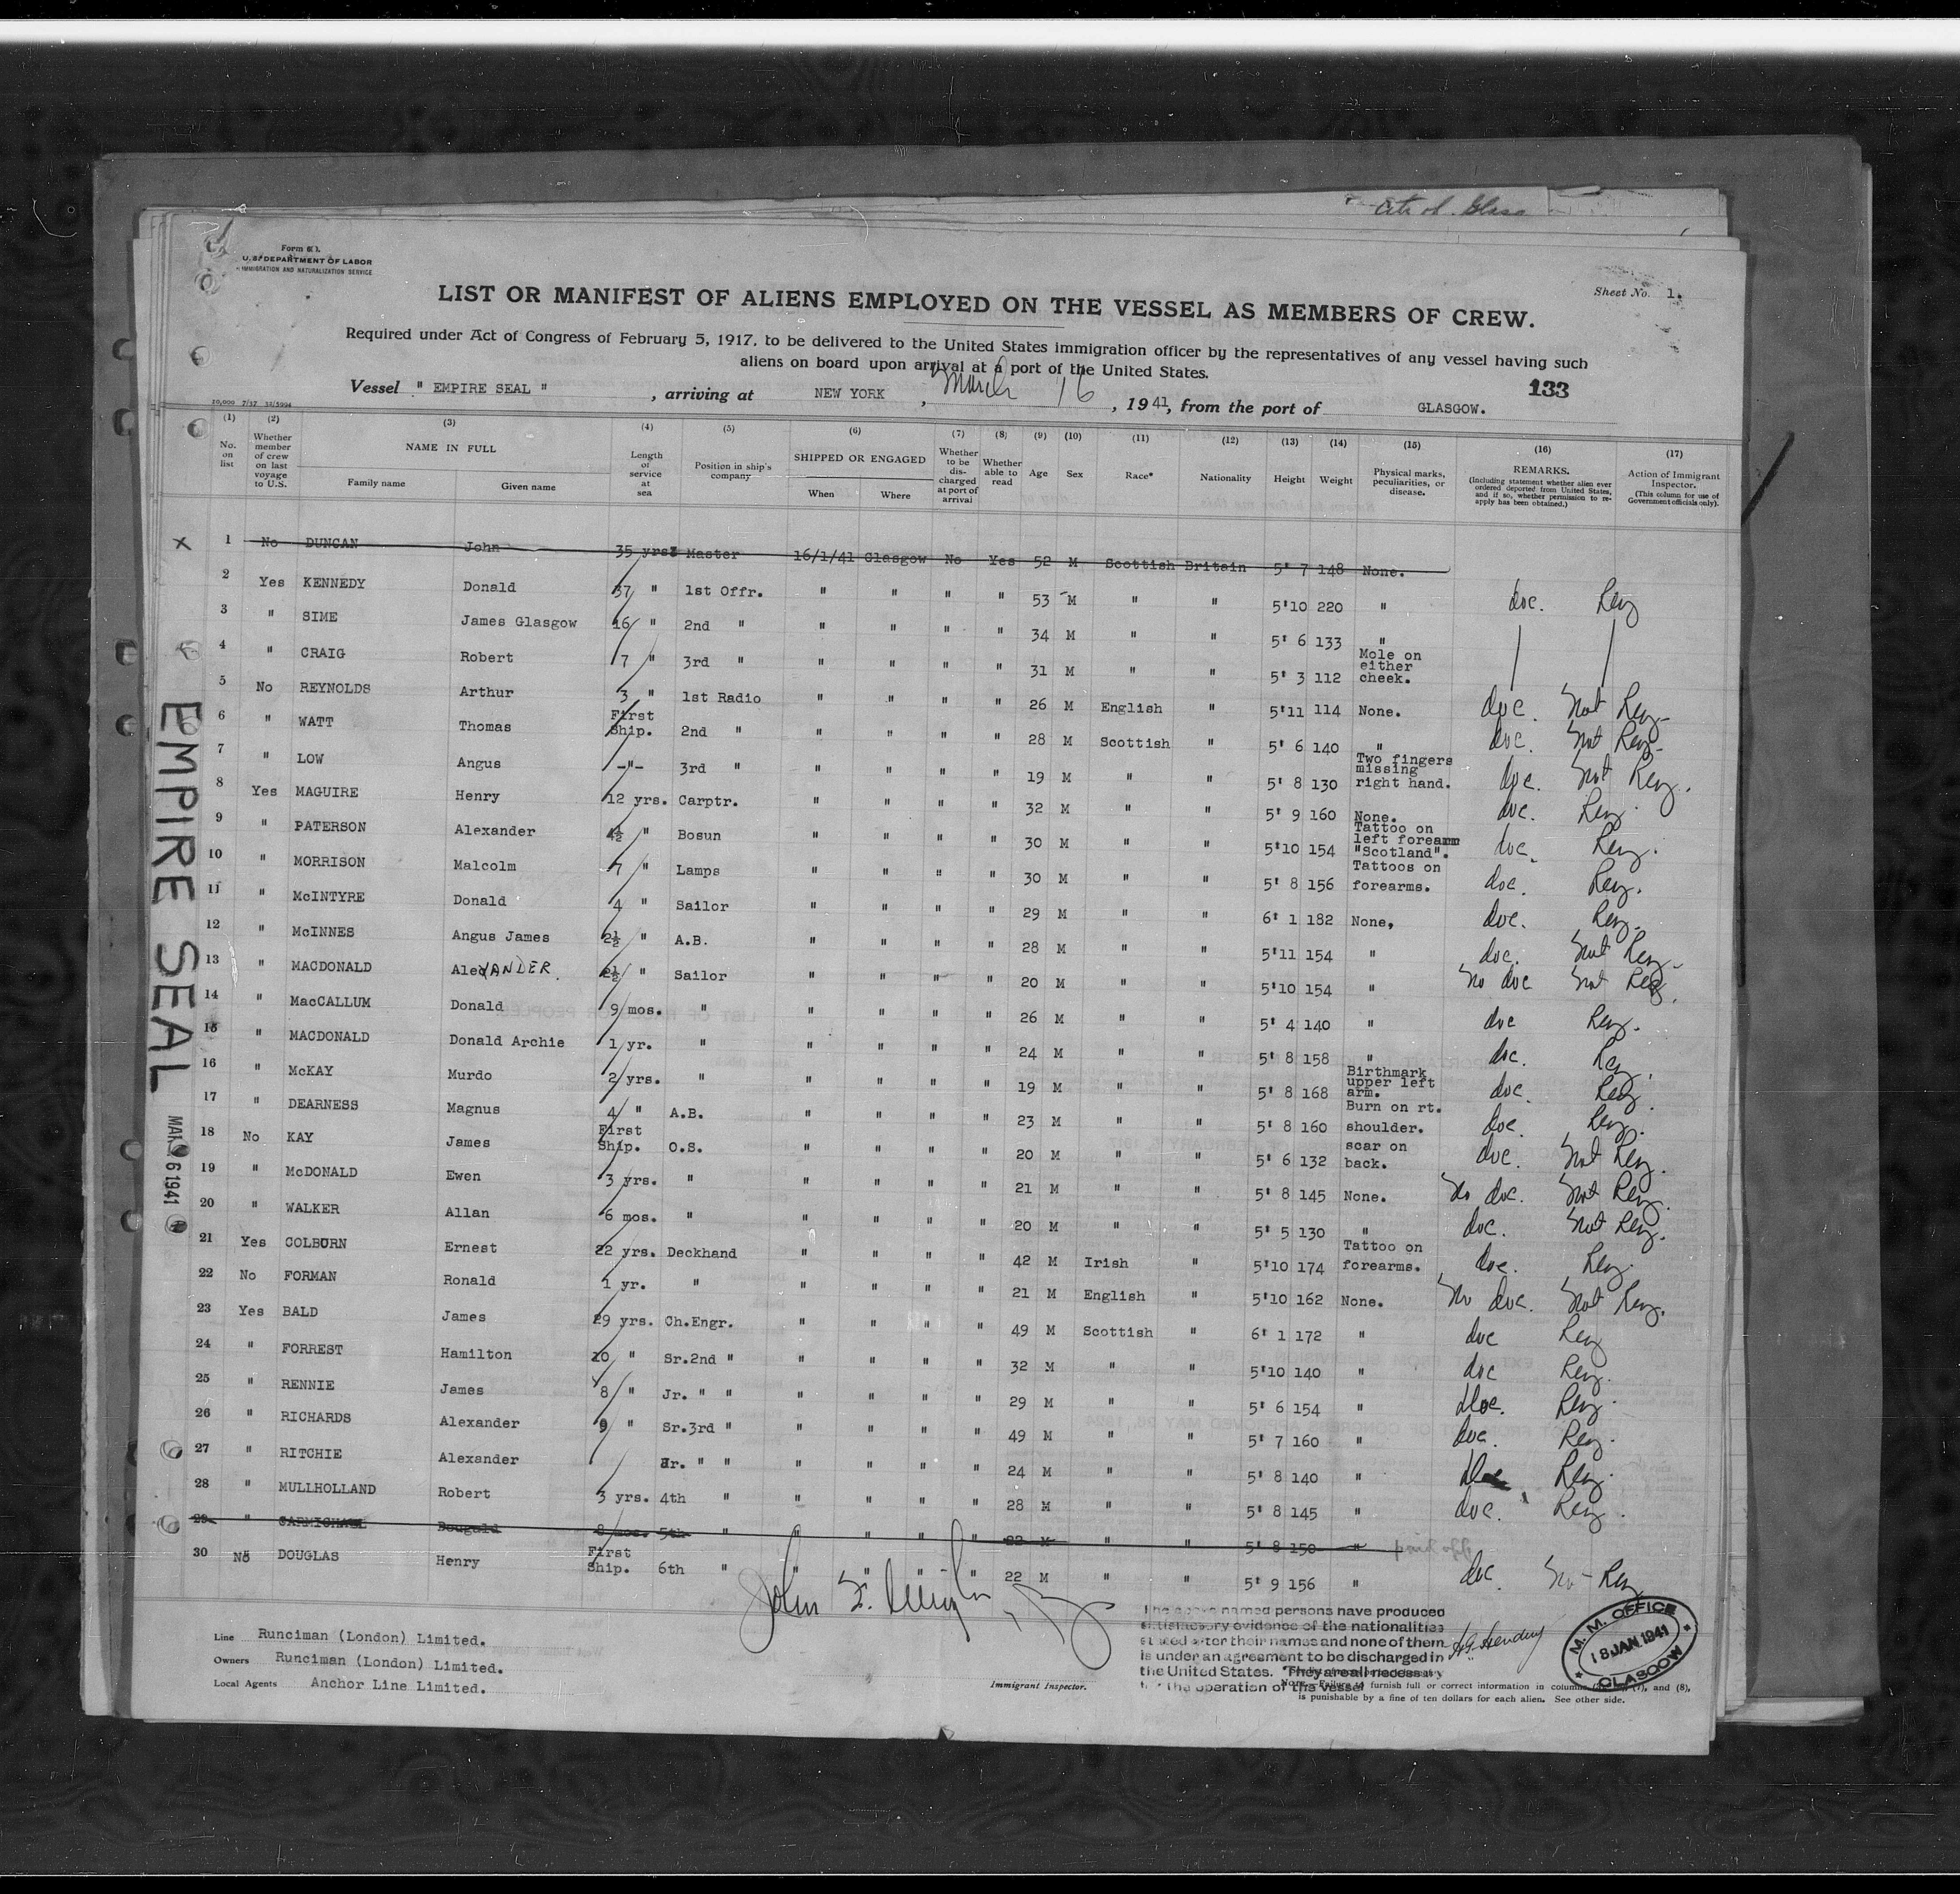 City of Glasg
Form 680.
U. S. DEPARTMENT OF LABOR
IMMIGRATION AND NATURALIZATION SERVICE
Sheet No. 1.
LIST OR MANIFEST OF ALIENS EMPLOYED ON THE VESSEL AS MEMBERS OF CREW.
Required under Act of Congress of February 5, 1917, to be delivered to the United States immigration officer by the representatives of any vessel having such
aliens on board upon arrival at a port of the United States.
133
Vessel " EMPIRE SEAL " , arriving at NEW YORK , March 16 , 1941, from the port of GLASGOW.
(1) (2) (3) (4) (5) (6) (7) (8) (9) (10) (11) (12) (13) (14) (15) (16) (17)
No. on list Whether member of crew on last voyage to U.S. NAME IN FULL Family name Given name Length of service at sea Position in ship's company SHIPPED OR ENGAGED When Where Whether to be discharged at port of arrival Whether able to read Age Sex Race* Nationality Height Weight Physical marks, peculiarities, or disease. REMARKS. (Including statement whether alien ever ordered deported from United States, and if so, whether permission to reapply has been obtained.) Action of Immigrant Inspector. (This column for use of Government officials only).
x 1 No DUNCAN John 35 yrs Master 16/1/41 Glasgow No Yes 52 M Scottish Britain 5' 7 148 None.
2 Yes KENNEDY Donald 37 " 1st Offr. " " " " 53 M " " 5'10 220 " doc. Reg
3 " SIME James Glasgow 16 " 2nd " " " " " 34 M " " 5' 6 133 "
4 " CRAIG Robert 7 " 3rd " " " " " 31 M " " 5' 3 112 Mole on either cheek.
5 No REYNOLDS Arthur 3 " 1st Radio " " " " 26 M English " 5'11 114 None. doc. Not Reg.
6 " WATT Thomas First Ship. 2nd " " " " " 28 M Scottish " 5' 6 140 " doc. Not Reg.
7 " LOW Angus -"- 3rd " " " " " 19 M " " 5' 8 130 Two fingers missing right hand. doc. Not Reg.
8 Yes MAGUIRE Henry 12 yrs. Carptr. " " " " 32 M " " 5' 9 160 None. doc. Reg.
9 " PATERSON Alexander 4½ " Bosun " " " " 30 M " " 5'10 154 Tattoo on left forearm "Scotland". doc. Reg.
10 " MORRISON Malcolm 7 " Lamps " " " " 30 M " " 5' 8 156 Tattoos on forearms. doc. Reg.
11 " McINTYRE Donald 4 " Sailor " " " " 29 M " " 6' 1 182 None, doc. Reg.
12 " McINNES Angus James 2½ " A.B. " " " " 28 M " " 5'11 154 " doc. Not Reg.
13 " MACDONALD AleXANDER. 2½ " Sailor " " " " 20 M " " 5'10 154 " No doc Not Reg.
14 " MacCALLUM Donald 9 mos. " " " " " 26 M " " 5' 4 140 " doc Reg.
15 " MACDONALD Donald Archie 1 yr. " " " " " 24 M " " 5' 8 158 " doc. Reg.
16 " McKAY Murdo 2 yrs. " " " " " 19 M " " 5' 8 168 Birthmark upper left arm. doc. Reg.
17 " DEARNESS Magnus 4 " A.B. " " " " 23 M " " 5' 8 160 Burn on rt. shoulder. doc. Reg.
18 No KAY James First Ship. O.S. " " " " 20 M " " 5' 6 132 scar on back. doc. Not Reg.
19 " McDONALD Ewen 3 yrs. " " " " " 21 M " " 5' 8 145 None. No doc. Not Reg.
20 " WALKER Allan 6 mos. " " " " " 20 M " " 5' 5 130 " doc. Not Reg.
21 Yes COLBURN Ernest 22 yrs. Deckhand " " " " 42 M Irish " 5'10 174 Tattoo on forearms. doc. Reg.
22 No FORMAN Ronald 1 yr. " " " " " 21 M English " 5'10 162 None. No doc. Not Reg.
23 Yes BALD James 29 yrs. Ch.Engr. " " " " 49 M Scottish " 6' 1 172 " doc Reg
24 " FORREST Hamilton 10 " Sr.2nd " " " " " 32 M " " 5'10 140 " doc Reg.
25 " RENNIE James 8 " Jr. " " " " " " 29 M " " 5' 6 154 " Doc. Reg.
26 " RICHARDS Alexander 9 " Sr.3rd " " " " " 49 M " " 5' 7 160 " doc. Reg.
27 " RITCHIE Alexander Jr. " " " " " " 24 M " " 5' 8 140 " Doc Reg.
28 " MULLHOLLAND Robert 3 yrs. 4th " " " " " 28 M " " 5' 8 145 " doc. Reg.
29 " CARMICHAEL Dougald 8 mos. 5th " " " " " 22 M " " 5' 8 150 "
30 No DOUGLAS Henry First Ship. 6th " " " " " 22 M " " 5' 9 156 " doc. Not Reg
EMPIRE SEAL
MAR 16 1941
Line Runciman (London) Limited.
Owners Runciman (London) Limited.
Local Agents Anchor Line Limited.
Immigrant Inspector.
The above named persons have produced
satisfactory evidence of the nationalities
stated after their names and none of them
is under an agreement to be discharged in
the United States. They are all necessary
for the operation of the vessel
M. M. OFFICE
18 JAN 1941
GLASGOW
Note.—Failure to furnish full or correct information in columns (7), and (8),
is punishable by a fine of ten dollars for each alien. See other side.